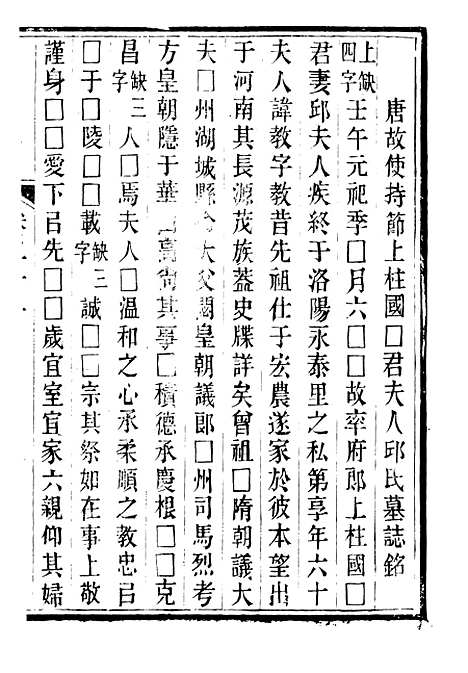 唐故使持節上柱國□君夫人邱氏墓誌銘
上缺四字壬午元祀季□月六□□故率府郎上柱國□
君妻邱夫人疾終于洛陽永泰里之私第享年六十
夫人諱教字教昔先祖仕于宏農遂家於彼本望出
于河南其長源茂族葢史牒詳矣曾祖□隋朝議大
夫□州湖城縣令大父閎皇朝議郎□州司馬烈考
方皇朝隱于華□高尙其事□積德承慶根□□克
昌缺三字人□馬夫人□温和之心承柔順之教忠㠯
□于□陵□□載缺三字誠□□宗其祭如在事上敬
謹身□□愛下㠯先□□歲宜室宜家六親仰其婦